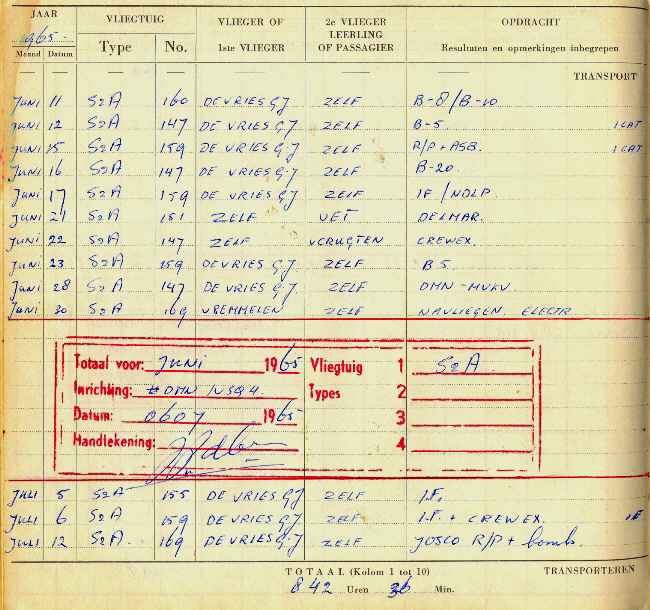 JAAR VLIEGTUIG VLIEGER OF 2e VLIEGER OPDRACHT
1965- LEERLING
Maand Datum Type No. 1ste VLIEGER OF PASSAGIER Resultaten en opmerkingen inbegrepen
TRANSPORT
JUNI 11 S2A 160 DE VRIES GJ ZELF B-8/B-10
JUNI 12 S2A 147 DE VRIES G.J. ZELF B-5. 1 CAT
JUNI 15 S2A 159 DE VRIES GJ ZELF R/P + ASB. 1 CAT
JUNI 16 S2A 147 DE VRIES G.J ZELF B-20.
JUNI 17 S2A 159 DE VRIES GJ ZELF IF /NDLP.
JUNI 21 S2A 151 ZELF VET DELMAR.
JUNI 22 S2A 147 ZELF VCRUGTEN CREWEX.
JUNI 23 S2A 159 DE VRIES GJ. ZELF B5.
JUNI 28 S2A 147 DE VRIES GJ. ZELF DMN-MVKV.
JUNI 30 S2A 169 VBEMMELEN ZELF NAVLIEGEN. ELECTR
Totaal voor: JUNI 1965 Vliegtuig 1 S2A.
Inrichting: DMN /VSQ4. Types 2
Datum: 0607 1965 3
Handtekening: 4
JULI 5 S2A 155 DE VRIES GJ ZELF I.F.
JULI 6 S2A 159 DE VRIES GJ ZELF I.F. + CREWEX. IF
JULI 12 S2A. 169 DE VRIES G.J ZELF JOSCO R/P + bomb.
TOTAAL (Kolom 1 tot 10) TRANSPORTEREN
842 Uren 36 Min.